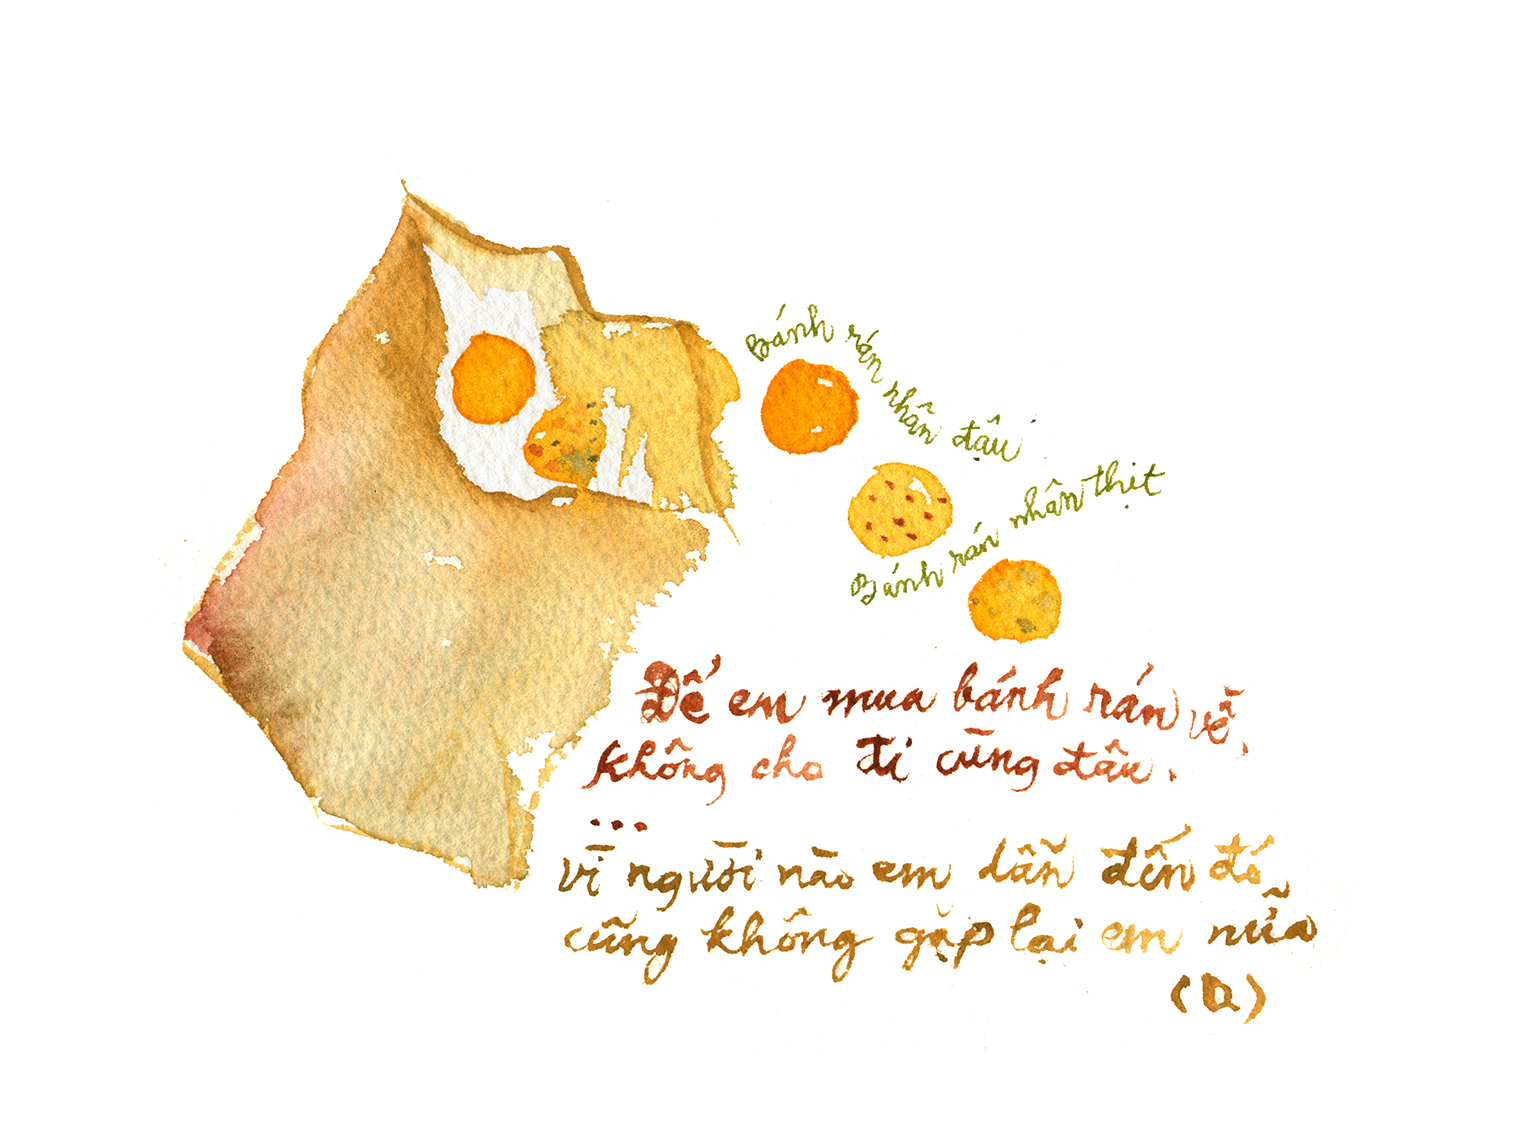 Bánh rán nhân đậu
Bánh rán nhân thịt
Để em mua bánh rán về,
không cho đi cùng đâu.
...
vì người nào em dẫn đến đó
cũng không gặp lại em nữa
(D)